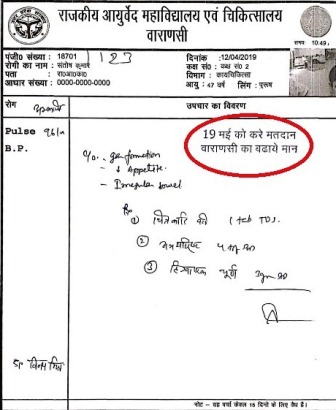 राजकीय आयुर्वेद महाविद्यालय एवं चिकित्सालय
वाराणसी
समय 10:49
पंजी० संख्या : 18701 / 123
रोगी का नाम : संतोष कुमार
पता : रा०आ०का०
आधार संख्या : 0000-0000-0000
दिनांक :12/04/2019
कक्ष सं० : कक्ष सं० 2
विभाग : कायचिकित्सा
आयु : 47 वर्ष लिंग : पुरुष
रोग
उपचार का विवरण
Pulse 96/m
B.P.
19 मई को करे मतदान
वाराणसी का बढाये मान
c/o. - gas formation
- ↓ Appetite
- Irregular bowel
Rx
①
②
③ चूर्ण
नोट - यह पर्चा केवल 15 दिनो के लिए वैध है।